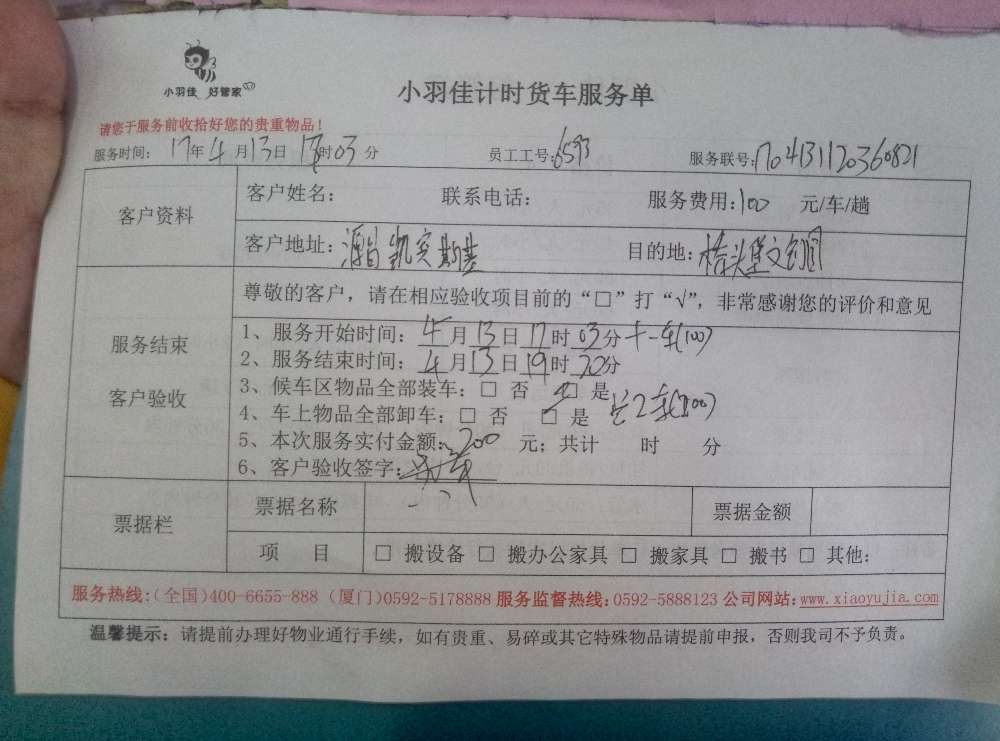 小羽佳 好管家
小羽佳计时货车服务单
请您于服务前收拾好您的贵重物品！
服务时间： 17年4月13日 时03分 员工工号：6593 服务联号：
客户资料
客户姓名： 联系电话： 服务费用：100 元/车/趟
客户地址： 凯宾斯基 目的地：
服务结束
客户验收
尊敬的客户，请在相应验收项目前的“□”打“√”，非常感谢您的评价和意见
1、服务开始时间：4月13日17时03分 (100)
2、服务结束时间：4月13日19时20分
3、候车区物品全部装车：□ 否 □ 是
4、车上物品全部卸车：□ 否 □ 是 共2车(200)
5、本次服务实付金额：200 元；共计 时 分
6、客户验收签字：
票据栏
票据名称 票据金额
项 目 □ 搬设备 □ 搬办公家具 □ 搬家具 □ 搬书 □ 其他：
服务热线：(全国)400-6655-888 (厦门)0592-5178888 服务监督热线：0592-5888123 公司网站：www.xiaoyujia.com
温馨提示：请提前办理好物业通行手续，如有贵重、易碎或其它特殊物品请提前申报，否则我司不予负责。